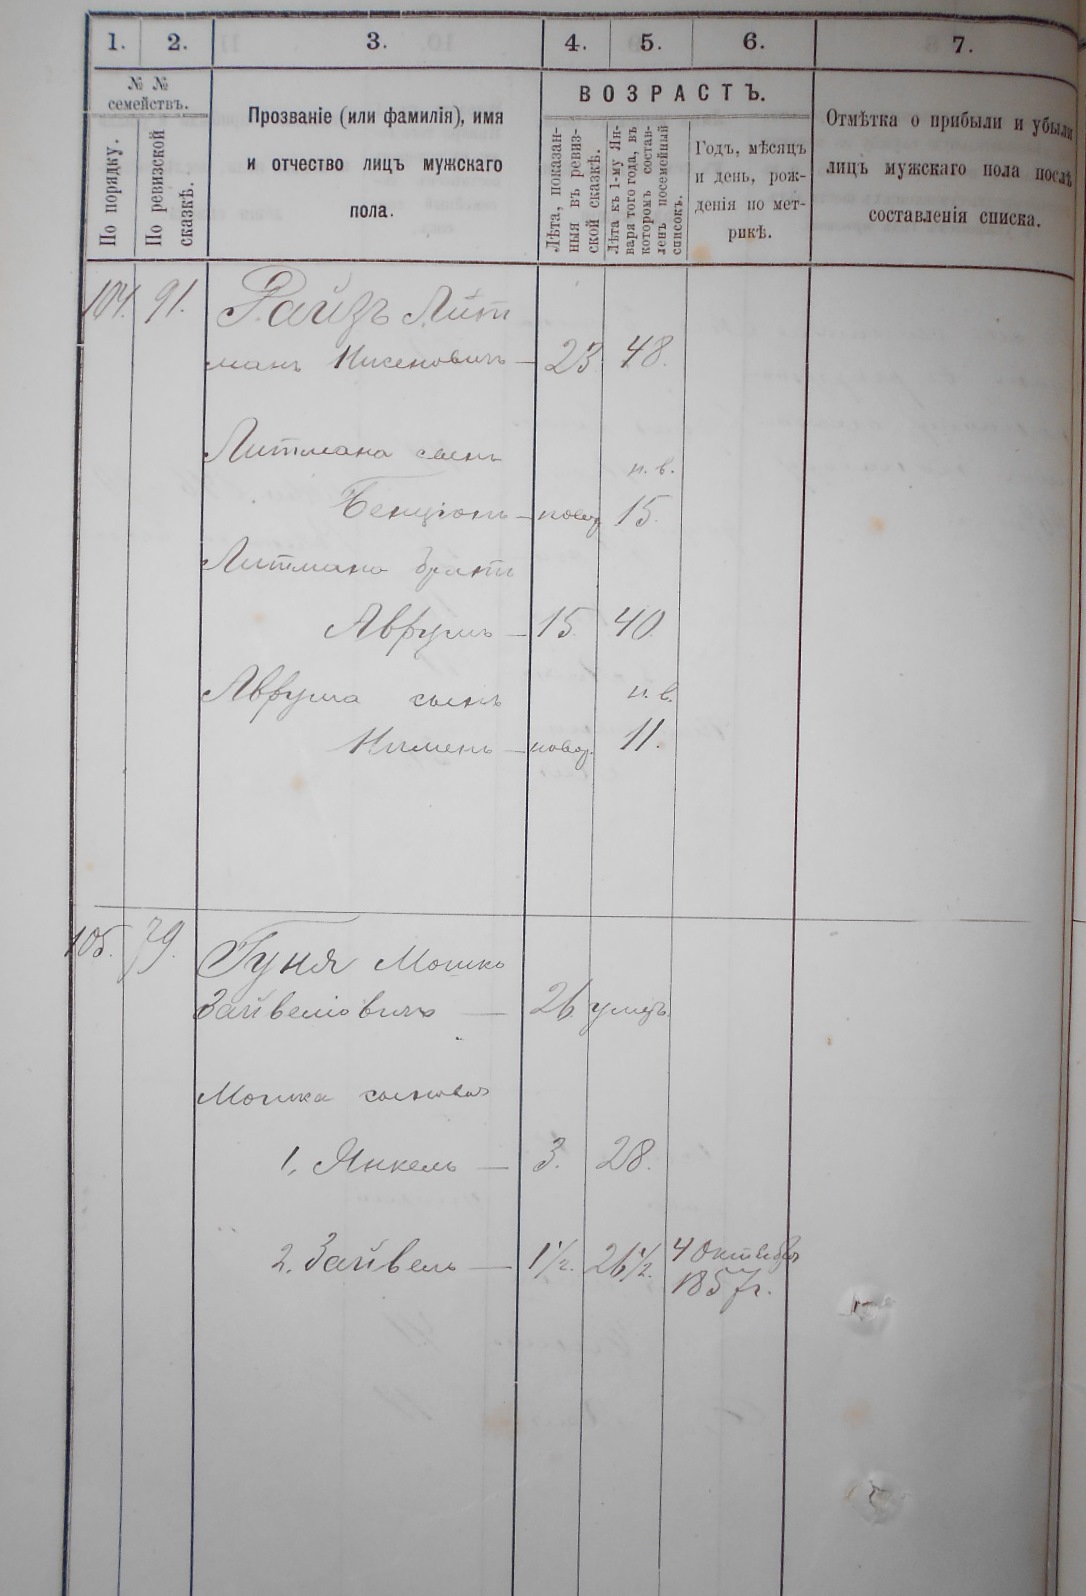 1. 2. 3. 4. 5. 6. 7.
№ №
семействъ.
По порядку.
По ревизской
сказкѣ.
Прозваніе (или фамилія), имя
и отчество лицъ мужскаго
пола.
ВОЗРАСТЪ.
Лѣта, показан-
ныя въ ревиз-
ской сказкѣ.
Лѣта къ 1-му Ян-
варя того года, въ
которомъ состав-
ленъ посемейный
списокъ.
Годъ, мѣсяцъ
и день, рож-
денія по мет-
рикѣ.
Отмѣтка о прибыли и убыли
лицъ мужскаго пола послѣ
составленія списка.
104. 91. Райзъ Лит
манъ Нисеновичъ — 23. 48.
Литмана сынъ
н. в.
Бенціонъ — новор. 15.
Литмана братъ
Аврумъ — 15. 40.
Аврума сынъ н. в.
— новор. 11.
105. 79. Гуня Мошко
Зайвеліовичъ — 26. умеръ.
Мошка сыновья
1. Янкель — 3. 28.
2. Зайвель — 1½. 26½. 4 Октября
1857 г.